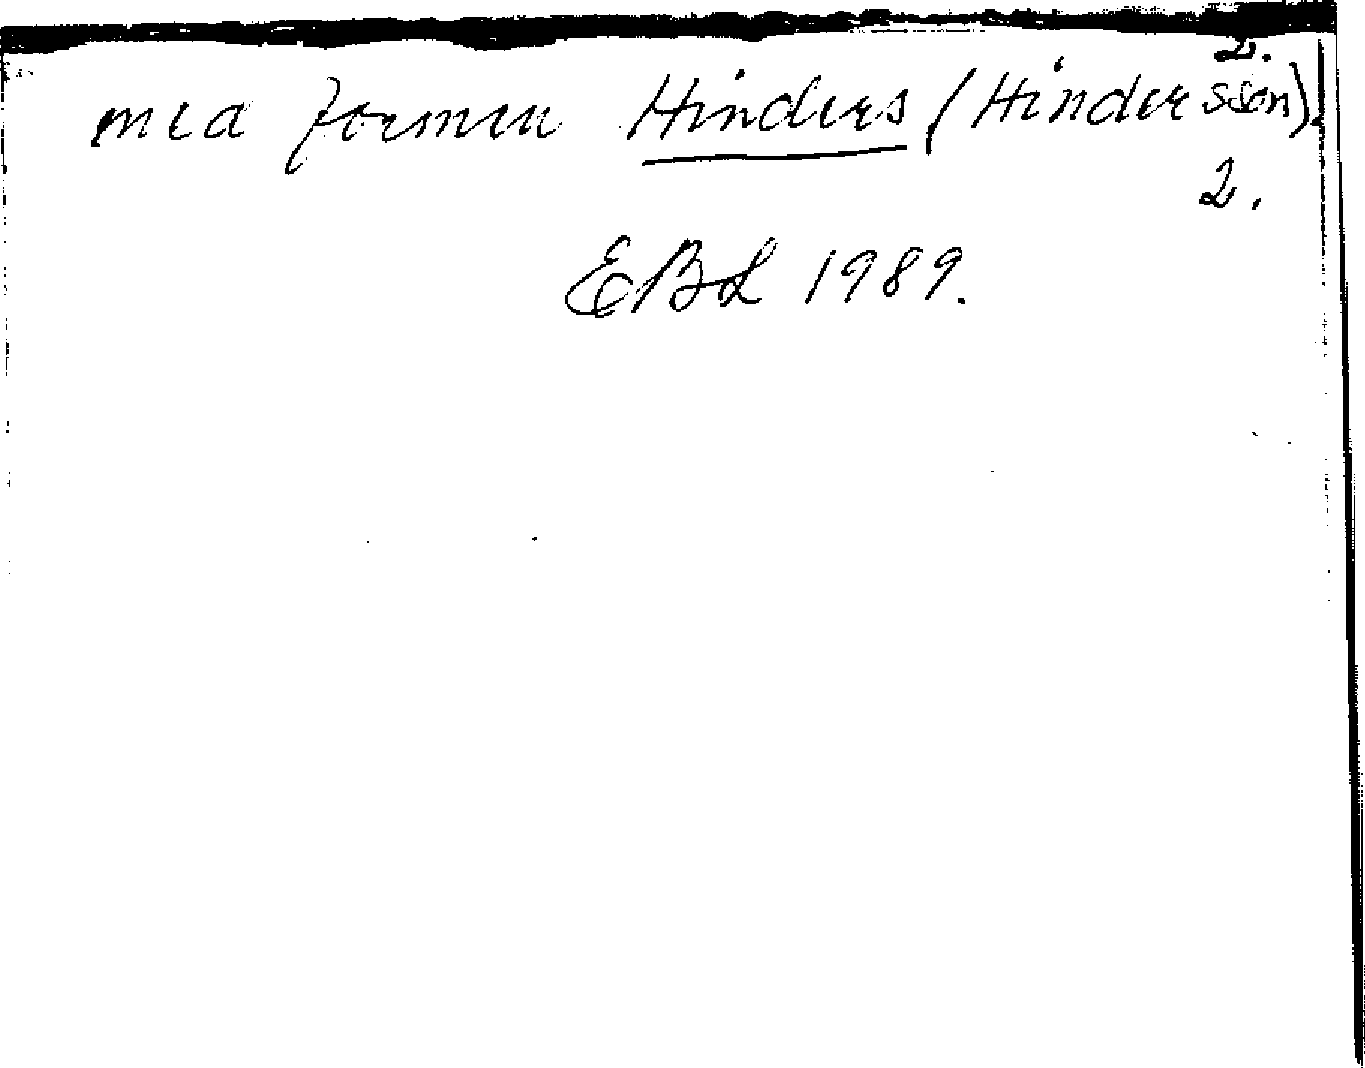 2.
med formen Hinders (Hindersson).
2.
EBL 1989.